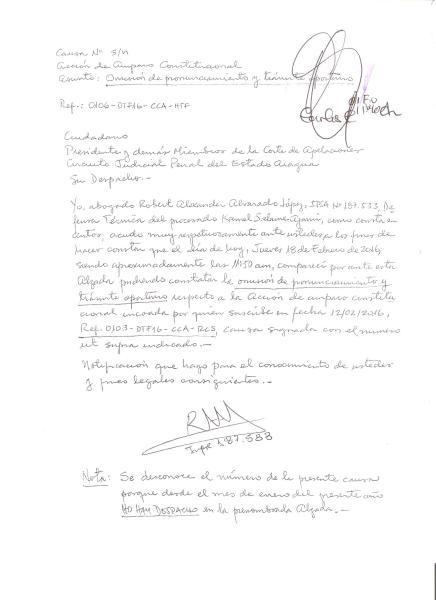 Causa Nº S/N
Acción de Amparo Constitucional
Asunto: Omisión de pronunciamiento y trámite oportuno
Ref.: 0106-DTF16-CCA-HTF
Ciudadano
Presidente y demás Miembros de la Corte de Apelaciones
Circuito Judicial Penal del Estado Aragua
Su Despacho.-
Yo, abogado Robert Alexander Alvarado López, IPSA Nº 187.533, De
fensa Técnica del procesado Kamel Salame Ajami, como consta en
autos, acudo muy respetuosamente ante ustedes a los fines de
hacer constar que el día de hoy, Jueves 18 de Febrero de 2016,
siendo aproximadamente las 11:50 am, comparecí por ante esta
Alzada pudiendo constatar la omisión de pronunciamiento y
trámite oportuno respecto a la Acción de amparo constitu
cional incoada por quien suscribe en fecha 12/02/2016,
Ref. 0103-DTF16-CCA-RCS, causa signada con el número
ut supra indicado.-
Notificación que hago para el conocimiento de ustedes
y fines legales consiguientes.-
Inpre 187.533
Nota: Se desconoce el número de la presente causa
porque desde el mes de enero del presente año
NO HAY DESPACHO en la prenombrada Alzada.-